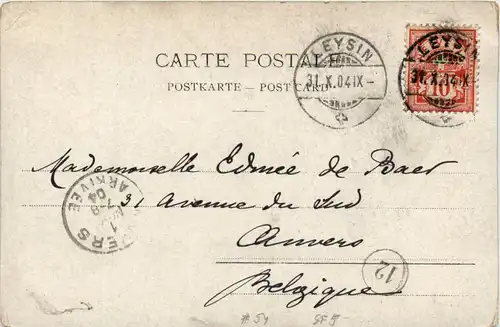 CARTE POSTALE
POSTKARTE – POST CARD
LEYSIN
31.X.04.IX–
LEYSIN
31.X.04.IX
10
Mademoiselle Edmée de Baer
31 Avenue du Sud
Anvers
Belgique
12
ARRIVÉE
04
1
#54
SF 5